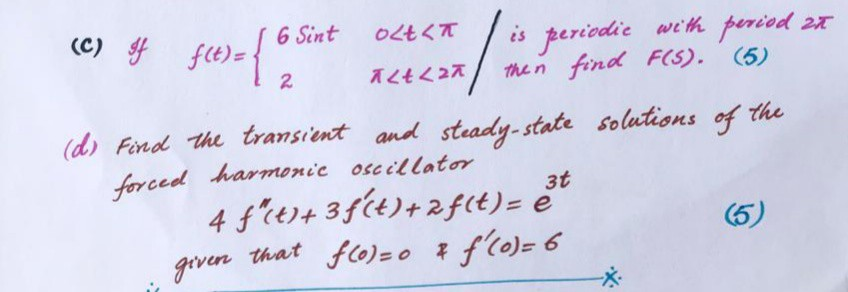 (c) If f(t)= { 6 Sint 0<t<π / is periodic with period 2π
2 π<t<2π / then find F(S). (5)
(d) Find the transient and steady-state solutions of the
forced harmonic oscillator
4 f"(t)+ 3f'(t)+2f(t)= e^3t (5)
given that f(0)=0 & f'(0)=6